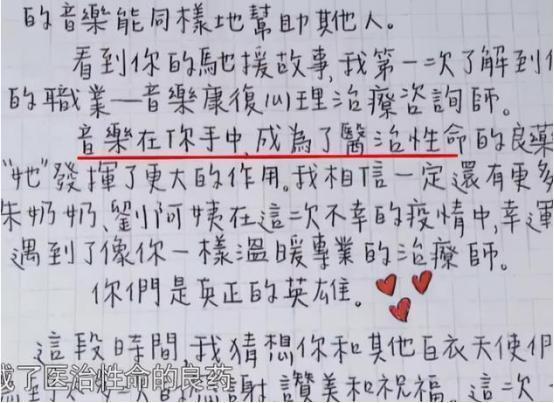 的音樂能同樣地幫助其他人。
看到你的馳援故事,我第一次了解到
的職業—音樂康復心理治療咨詢師。
音樂在你手中,成為了醫治性命的良藥
"她"發揮了更大的作用。我相信一定還有更多
朱奶奶、劉阿姨在這次不幸的疫情中,幸運
遇到了像你一樣溫暖專業的治療師。
你們是真正的英雄。
這段時間,我猜想你和其他白衣天使們
成了医治性命的良药
謝,讚美和祝福。這次